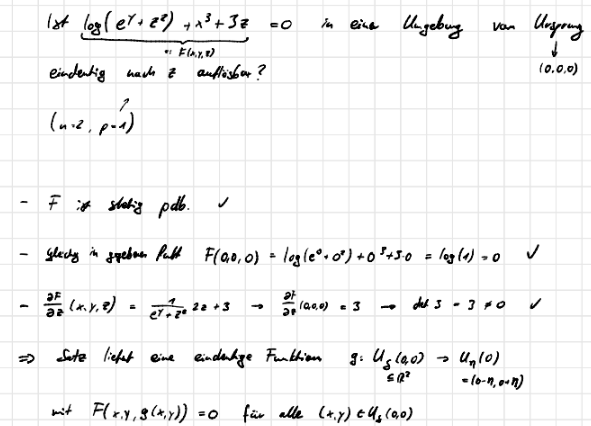 Ist log(e^y + z²) + x³ + 3z = 0 in einer Umgebung vom Ursprung
=: F(x,y,z)
↓
eindeutig nach z auflösbar?
(0,0,0)
↑
(n=2, p=1)
- F ist stetig pdb. ✓
- Gleichg in gegebenen Pkt F(0,0,0) = log(e⁰ + 0²) + 0³ + 3·0 = log(1) = 0 ✓
- ∂F/∂z (x,y,z) = 1/(e^y + z²) 2z + 3 → ∂F/∂z (0,0,0) = 3 → det 3 = 3 ≠ 0 ✓
⇒ Satz liefert eine eindeutige Funktion g: U_δ(0,0) → U_η(0)
⊆ ℝ² = (0-η, 0+η)
mit F(x,y,g(x,y)) = 0 für alle (x,y) ∈ U_δ(0,0)